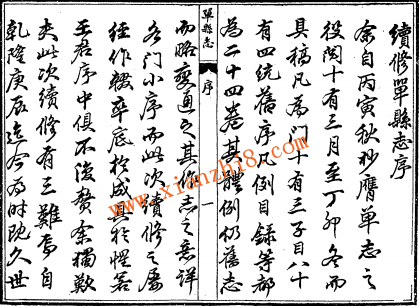 續修單縣志序
余自丙寅秋杪膺單志之
役閱十有三月至丁卯冬而
具稿凡為門十有三子目八十
有四統舊序凡例目錄等都
為二十四卷其體例仍舊志
單縣志
序
一
而略變通之其修志之意詳
各門小序而此次續修之屢
經作輟卒底於成具於惺菴
王君序中俱不復贅余獨歎
夫此次續修有三難焉自
乾隆庚辰迄今為時既久世
www.xianzhi8.com